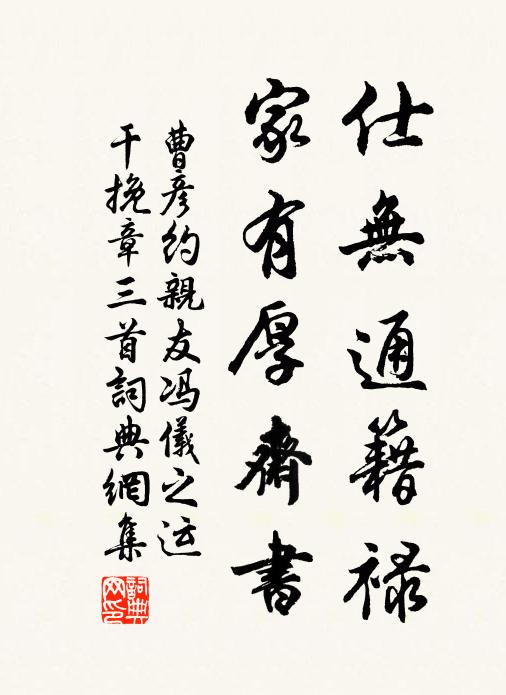 仕無通籍禄
家有厚齋書
曹彦約親友冯儀之运
干挽章三首詞典網集
詞典网印